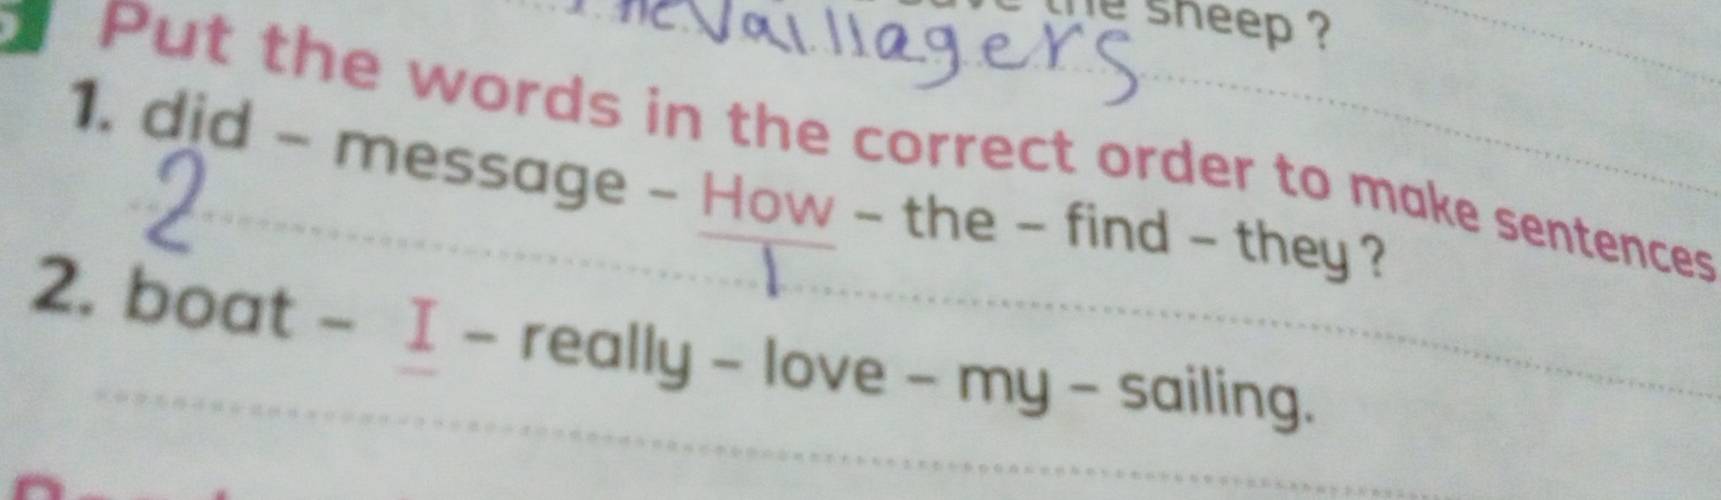 the sheep ?
Vaillagers
Put the words in the correct order to make sentences
1. did - message - How - the - find - they ?
2 1
2. boat - I - really - love - my - sailing.